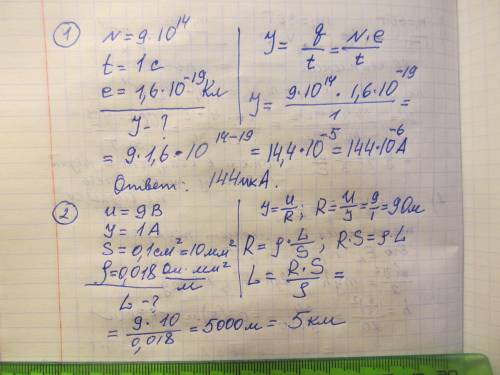 1 N = 9·10¹⁴
t = 1 с
e = 1,6·10⁻¹⁹ Кл
У - ?
У = q/t = N·e/t
У = 9·10¹⁴ · 1,6·10⁻¹⁹ / 1 =
= 9·1,6·10¹⁴⁻¹⁹ = 14,4·10⁻⁵ = 144·10⁻⁶ А
Ответ: 144 мкА.
2 U = 9 В
У = 1 А
S = 0,1 см² = 10 мм²
ρ = 0,018 Ом·мм²/м
L - ?
У = U/R; R = U/У = 9/1 = 9 Ом
R = ρ·L/S; R·S = ρ·L
L = R·S/ρ =
= 9·10/0,018 = 5000 м = 5 км